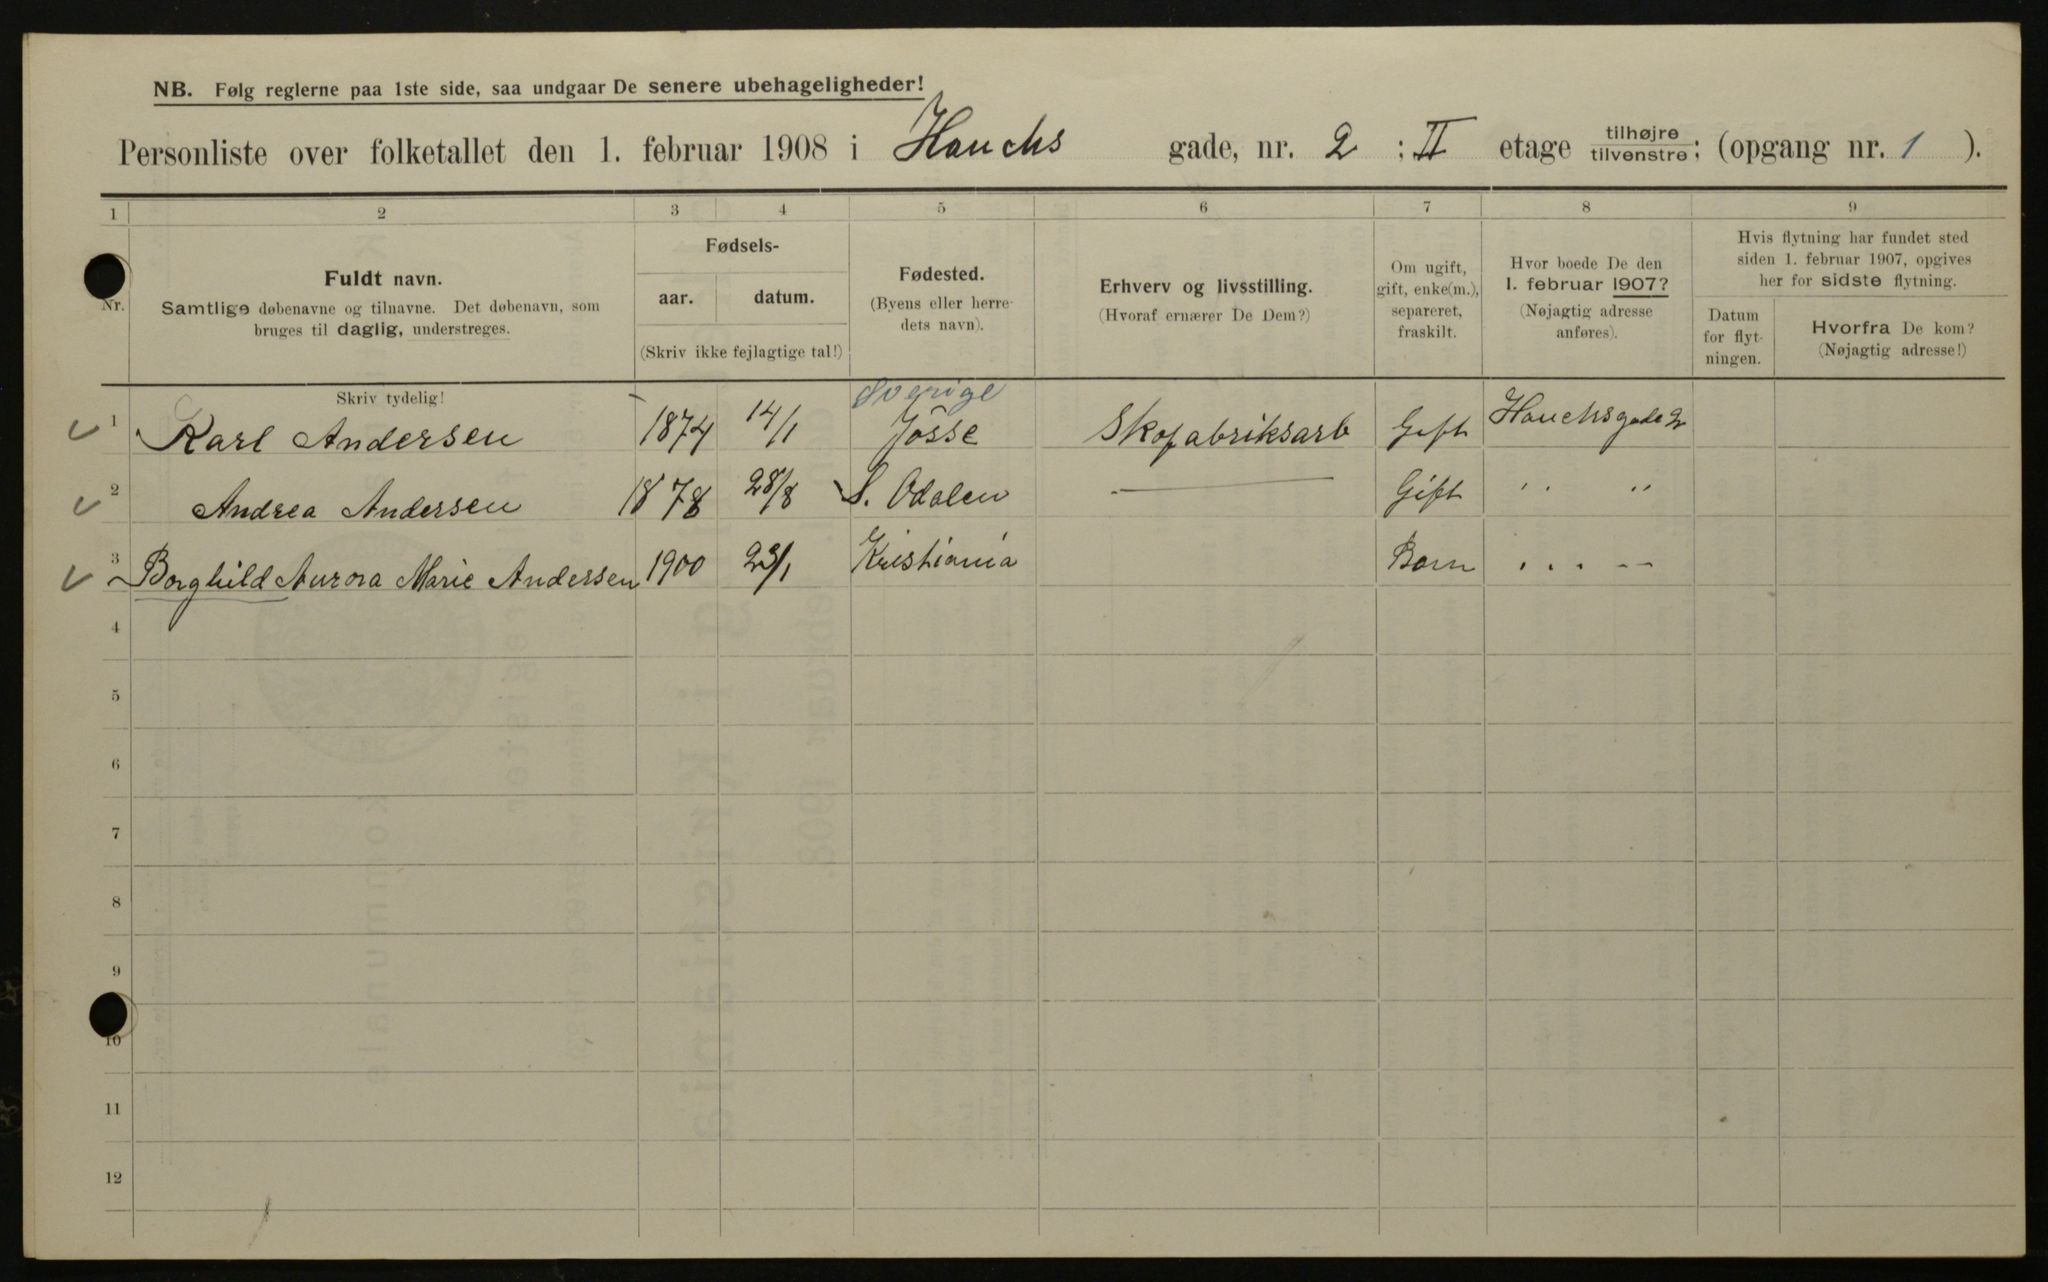 NB. Følg reglerne paa 1ste side, saa undgaar De senere ubehageligheder!
Personliste over folketallet den 1. februar 1908 i Hauchs gade, nr. 2 : II etage tilhøjre/tilvenstre; (opgang nr. 1 ).
1 2 3 4 5 6 7 8 9
Nr.
Fuldt navn.
Samtlige døbenavne og tilnavne. Det døbenavn, som
bruges til daglig, understreges.
Fødsels-
aar. datum.
(Skriv ikke fejlagtige tal!)
Fødested.
(Byens eller herre-
dets navn).
Erhverv og livsstilling.
(Hvoraf ernærer De Dem?)
Om ugift,
gift, enke(m.),
separeret,
fraskilt.
Hvor boede De den
1. februar 1907?
(Nøjagtig adresse
anføres).
Hvis flytning har fundet sted
siden 1. februar 1907, opgives
her for sidste flytning.
Datum
for flyt-
ningen.
Hvorfra De kom?
(Nøjagtig adresse!)
Skriv tydelig!
Sverige
1 Karl Andersen 1874 14/1 Jösse Skofabriksarb Gift Hauchsgade 2
2 Andrea Andersen 1878 28/8 S. Odalen — Gift " "
3 Borghild Aurora Marie Andersen 1900 23/1 Kristiania Barn " "
4
5
6
7
8
9
10
11
12